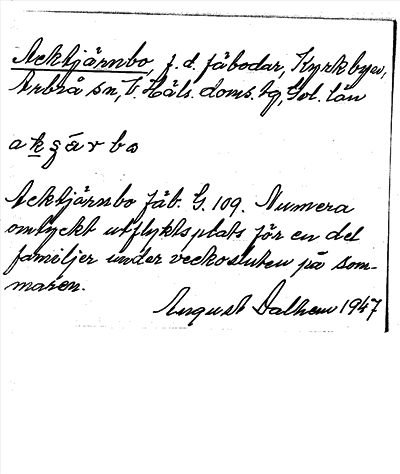 Acktjärnbo, f. d. fäbodar, Kyrkbyn,
Arbrå sn, V. Häls. doms. hg, Gvl. län
akʂärbo
Acktjärnbo fäb. G. 109. Numera
omtyckt utflyktsplats för en del
familjer under veckosluten på som-
maren.
August Dalhem 1947